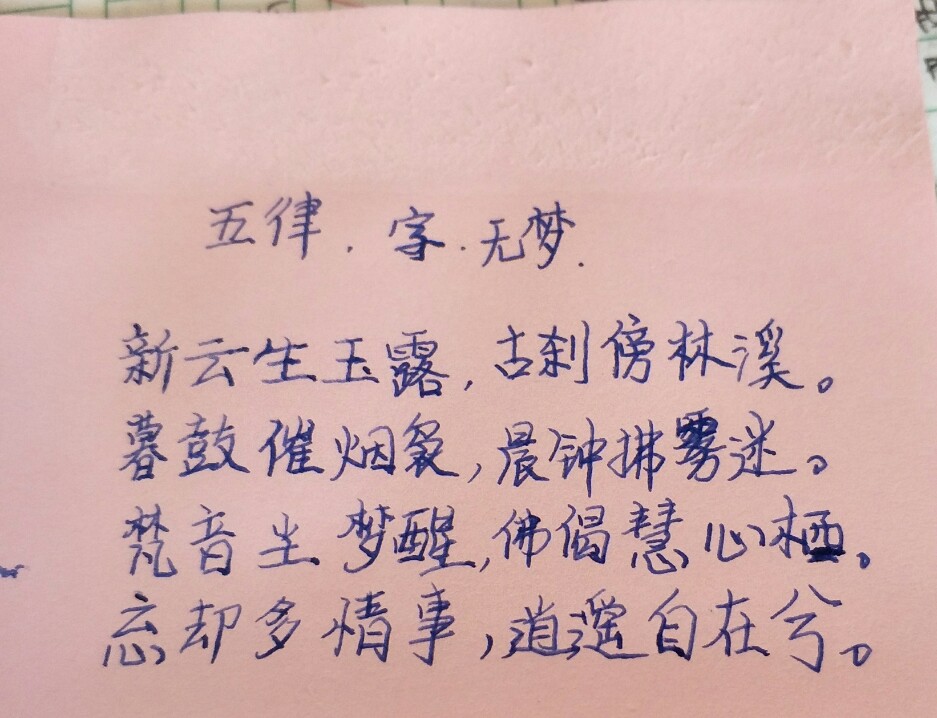 五律.字.无梦.
新云生玉露,古刹傍林溪。
暮鼓催烟袅,晨钟拂雾迷。
梵音尘梦醒,佛偈慧心栖。
忘却多情事,逍遥自在兮。